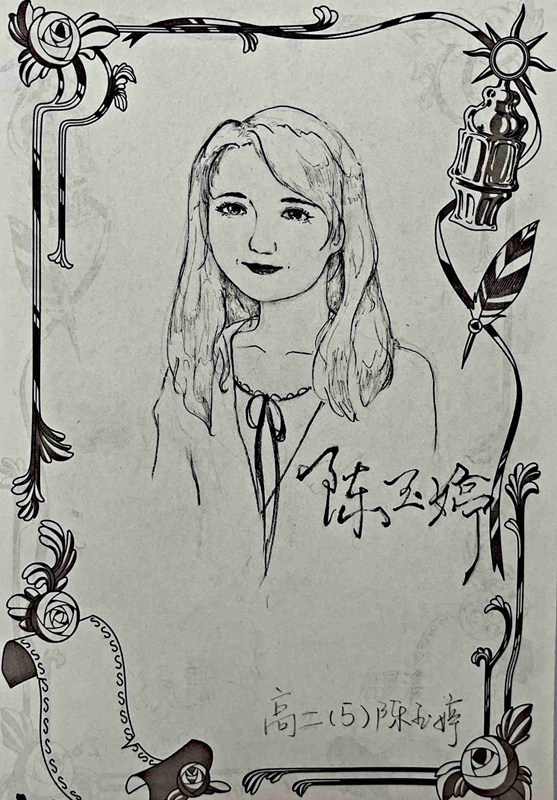 陈玉婷
高二(5)陈玉婷